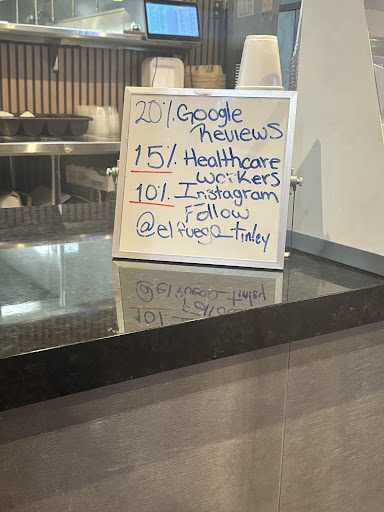 20% Google
Reviews
15% Healthcare
workers
10% Instagram
Follow
@elfuego_tinley